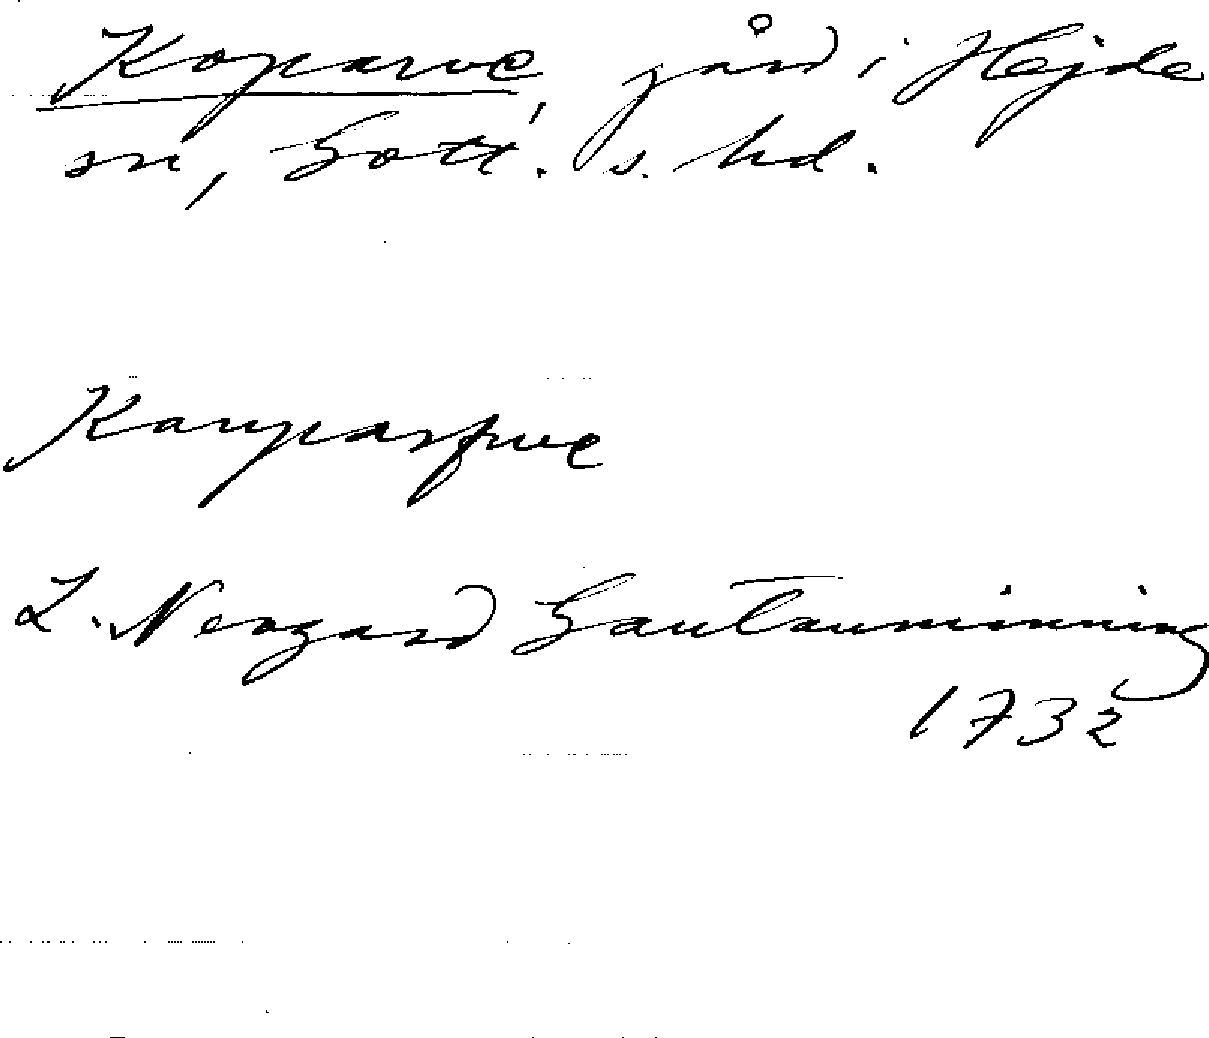 Koparve, gård i Hejde
sn, Gotl. s. hd.
Kauparfwe
L. Neogard Gautauminning
1732